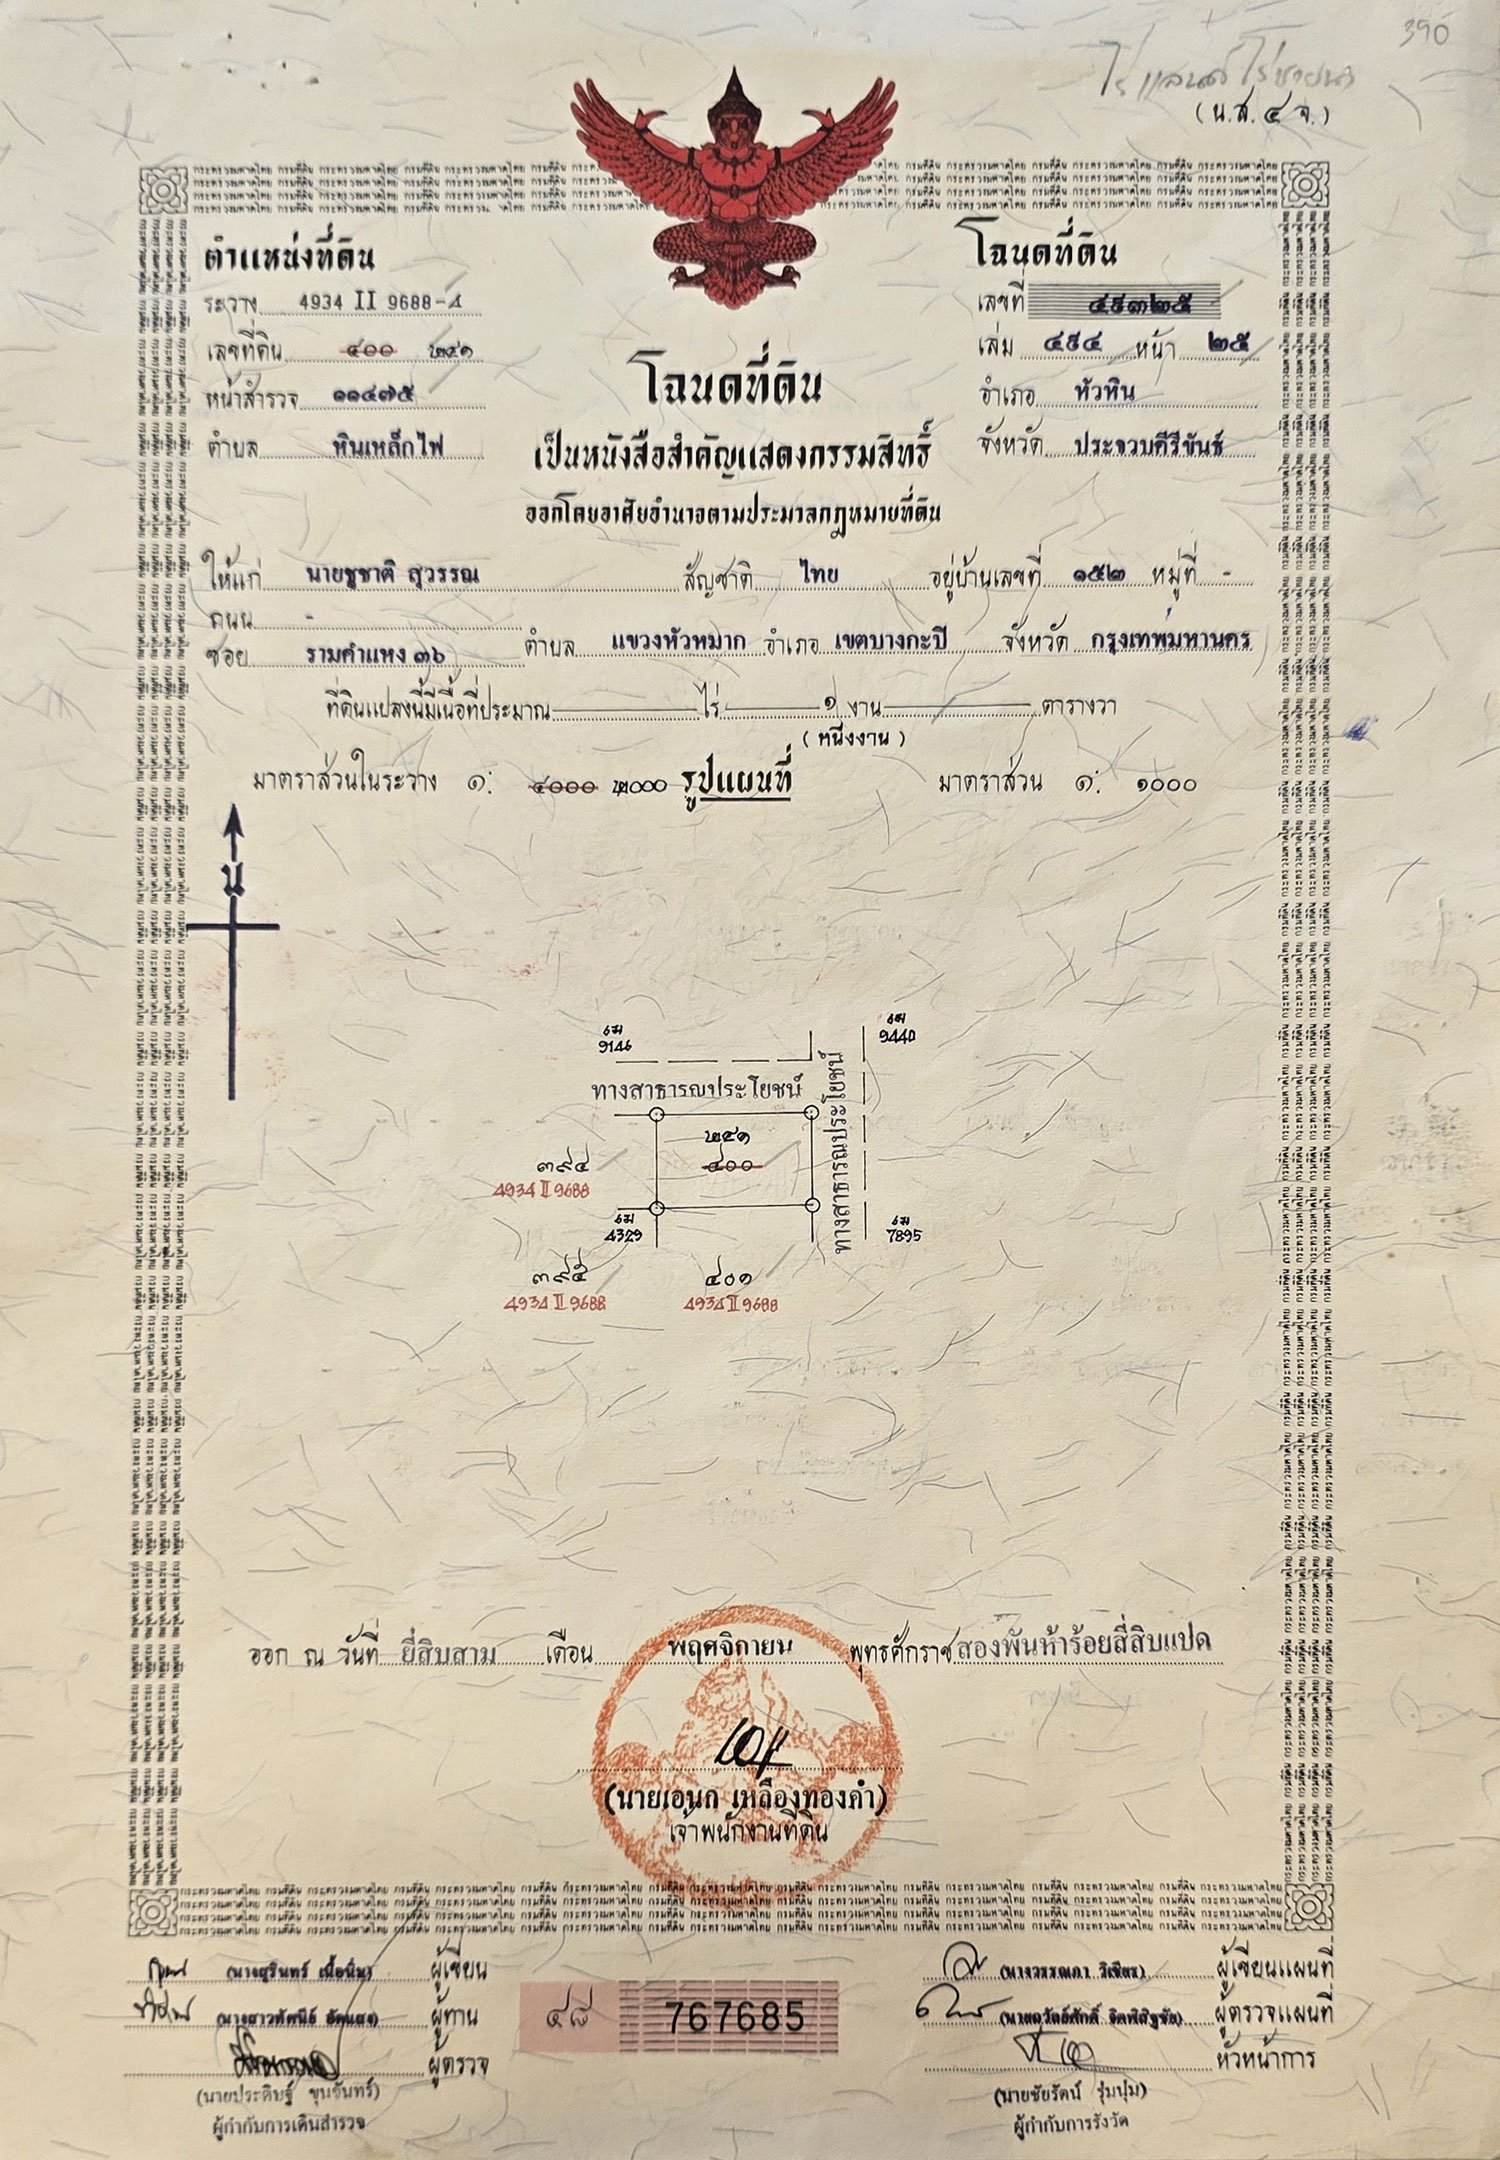 390
(น.ส. ๔ จ.)
ตำแหน่งที่ดิน
ระวาง 4934 II 9688-4
เลขที่ดิน ๔๐๐ ๒๕๑
หน้าสำรวจ ๑๑๔๗๕
ตำบล หินเหล็กไฟ
โฉนดที่ดิน
เลขที่ ๔๙๓๒๕
เล่ม ๔๙๔ หน้า ๒๕
อำเภอ หัวหิน
จังหวัด ประจวบคีรีขันธ์
โฉนดที่ดิน
เป็นหนังสือสำคัญแสดงกรรมสิทธิ์
ออกโดยอาศัยอำนาจตามประมวลกฎหมายที่ดิน
ให้แก่ นายชูชาติ สุวรรณ สัญชาติ ไทย อยู่บ้านเลขที่ ๑๕๒ หมู่ที่ -
ถนน -
ซอย รามคำแหง ๓๖ ตำบล แขวงหัวหมาก อำเภอ เขตบางกะปิ จังหวัด กรุงเทพมหานคร
ที่ดินแปลงนี้มีเนื้อที่ประมาณ ไร่ ๑ งาน ตารางวา
(หนึ่งงาน)
มาตราส่วนในระวาง ๑: ๔๐๐๐ ๒๐๐๐ รูปแผนที่ มาตราส่วน ๑: ๑๐๐๐
น
9146
9440
ทางสาธารณประโยชน์
ทางสาธารณประโยชน์
๒๕๑
๔๐๐
๓๙๔
4934 II 9688
4329
7895
๓๙๕
4934 II 9688
๔๐๑
4934 II 9688
ออก ณ วันที่ ยี่สิบสาม เดือน พฤศจิกายน พุทธศักราช สองพันห้าร้อยสี่สิบแปด
(นายเอนก เหลืองทองคำ)
เจ้าพนักงานที่ดิน
(นางสุรินทร์ เนื้อนิ่ม) ผู้เขียน
ผู้ทาน
ผู้ตรวจ
(นายประดิษฐ์ ขุนจันทร์)
ผู้กำกับการเดินสำรวจ
๔๘ 767685
(นางวรรณภา วิเชียร) ผู้เขียนแผนที่
ผู้ตรวจแผนที่
หัวหน้าการ
(นายชัยรัตน์ รุ่มนุ่ม)
ผู้กำกับการรังวัด